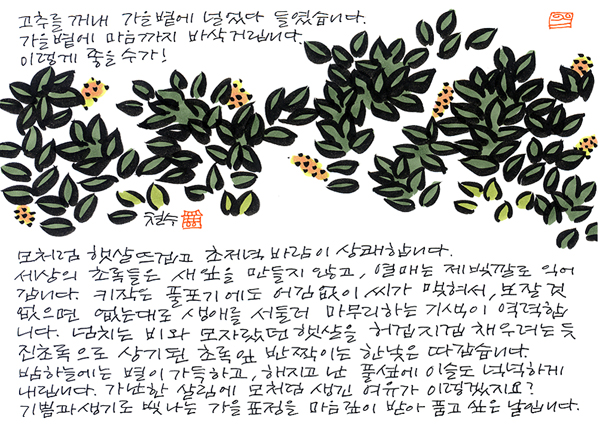 고추를 꺼내 가을볕에 널었다 들였습니다.
가을볕에 마음까지 바삭거립니다.
이렇게 좋을수가!
철수
모처럼 햇살뜨겁고 초저녁 바람이 상쾌합니다.
세상의 초록들은 새잎을 만들지 않고, 열매는 제빛깔로 익어
갑니다. 키작은 풀포기에도 어김없이 씨가 맺혀서, 보잘것
없으면 없는대로 생애를 서둘러 마무리하는 기색이 역력합
니다. 넘치는 비와 모자랐던 햇살을 허겁지겁 채우려는듯
진초록으로 상기된 초록잎 반짝이는 한낮은 따갑습니다.
밤하늘에는 별이 가득하고, 해지고 난 풀섶에 이슬도 넉넉하게
내립니다. 가난한 살림에 모처럼 생긴 여유가 이렇겠지요?
기쁨과생기로 빛나는 가을표정을 마음깊이 받아 품고 싶은 날입니다.